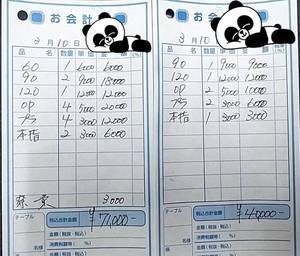 お会計
3月10日
数量 単価 金額
60 1 6000 6000
90 2 9000 18000
120 1 12000 12000
OP 4 5000 20000
プラ 4 3000 12000
本指 2 3000 6000
3000
テーブル
名様
税込合計金額
¥71,000-
金額(税抜・税込)
消費税額等( %)
お
3月10日
数量 単価 金額
90 1 9000 9000
120 1 12000 12000
OP 2 5000 10000
プラ 2 3000 6000
本指 1 3000 3000
テーブル
名様
税込合計金額
¥40,000-
金額(税抜・税込)
消費税額等( %)